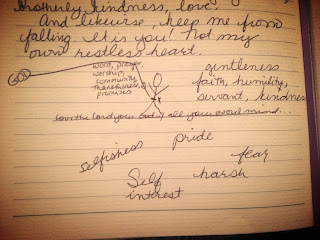 brotherly kindness, love.
And likewise, keep me from
falling. It is you! Not my
own restless heart.
GOD
word, prayer,
worship,
community,
thankfulness,
promises
gentleness
faith, humility,
servant, kindness
love the Lord your God w/ all your soul mind...
selfishness
pride
fear
Self
intrest
harsh